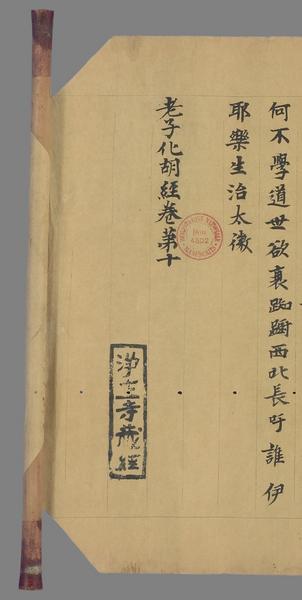 何不學道世欲衰踟躕西北長吁誰伊
耶樂生治太徽
老子化胡經卷第十
淨土寺藏經
4502